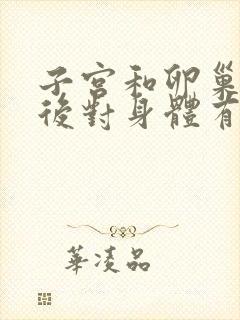 子宮和卵巢
後對身體有
華凌品